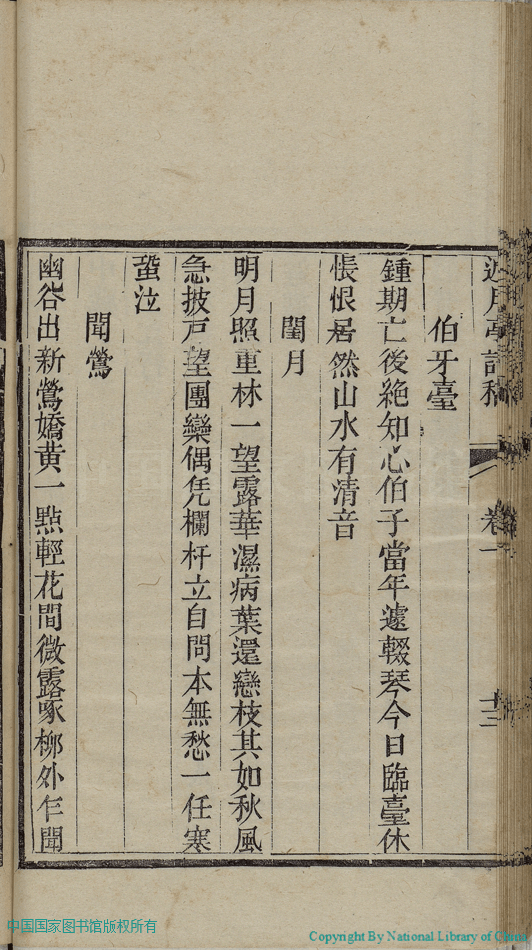 近月亭詩稿 卷一 十三
伯牙臺
鍾期亡後絶知心伯子當年遽輟琴今日臨臺休
悵恨居然山水有清音
閨月
明月照重林一望露華濕病葉還戀枝其如秋風
急披戸望團欒偶凭欄杆立自問本無愁一任寒
蛩泣
聞鶯
幽谷出新鶯嬌黄一點輕花間微露啄栁外乍聞
中国国家图书馆版权所有
Copyright By National Library of China